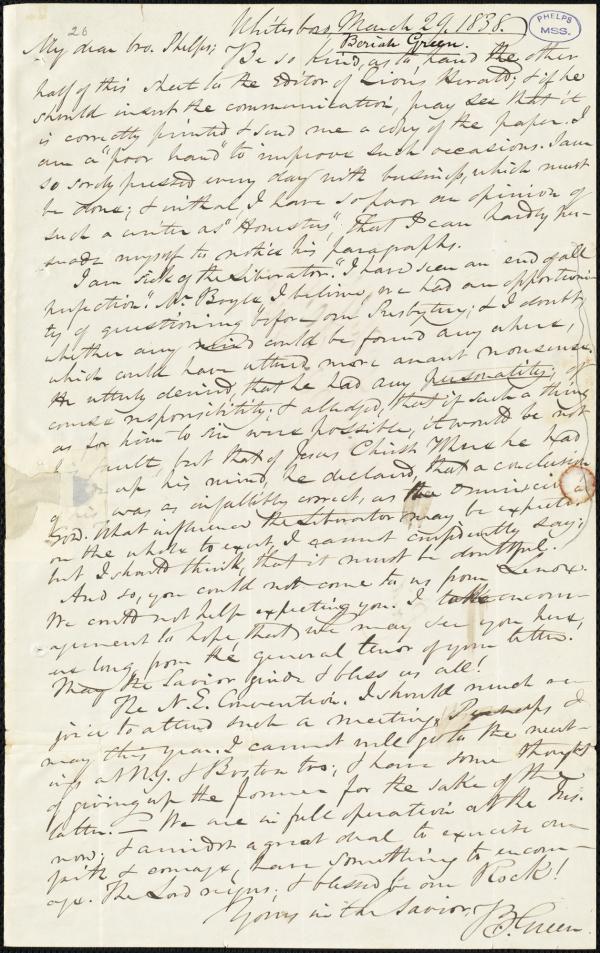 26
Whitesboro, March 29. 1838.
PHELPS
MSS.
My dear bro. Phelps;
Beriah Green.
Be so kind, as to hand the other
half of this sheet to the Editor of Zion's Herald; & if he
should insert the communication, pray see that it
is correctly printed & send me a copy of the paper. I
am a "poor hand" to improve such occasions. I am
so sorely pressed every day with business, which must
be done; & withal I have so poor an opinion of
such a writer as "Honestus," that I can hardly per-
suade myself to notice his paragraphs.
I am sick of the Liberator. "I have seen an end of all
perfection". Mr. Boyle, I believe, we had an opportuni-
ty of questioning before our Presbytery; & I doubt,
whether any mind could be found any where,
which could have uttered more arrant nonsense.
He utterly denied, that he had any personality; of
course responsibility; & alleged, that if such a thing
as for him to sin were possible, it would be not
fault, but that of Jesus Christ. When he had
up his mind, he declared, that a conclusion
was as infallibly correct, as the Omniscient
God. What influence the Liberator may be expected
on the whole to exert, I cannot confidently say;
but I should think, that it must be doubtful.
And so, you could not come to us from Lenox.
We could not help expecting you. I take encour-
agement to hope, that we may see you here,
ere long, from the general tenor of your letter.
May the Savior guide & bless us all!
The N. E. Convention. I should much re-
joice to attend such a meeting. Perhaps I
may this year. I cannot well go to the meet-
ings at N.Y. & Boston too; & have some thoughts
of giving up the former for the sake of the
latter. — We are in full operation at the Ins.
now; & amidst a great deal to exercise our
faith & courage, have something to encour-
age. The Lord reigns; & blessed be our Rock!
Yours in the Savior, B. Green.